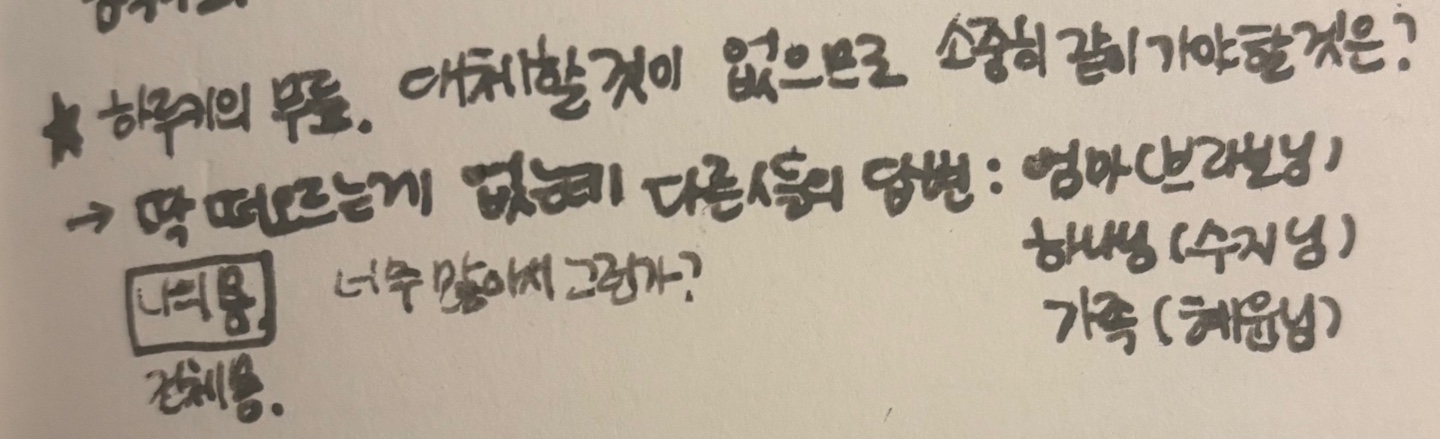 ★ 하루키의 무릎. 대체할 것이 없으므로 소중히 같이 가야할 것은?
→ 딱 떠오르는게 없는데 다른 사람들의 답변: 엄마(브라질님)
하나님 (수지님)
가족 (혜윤님)
너무 많아서 그런가?
나의 몸.
전체 몸.